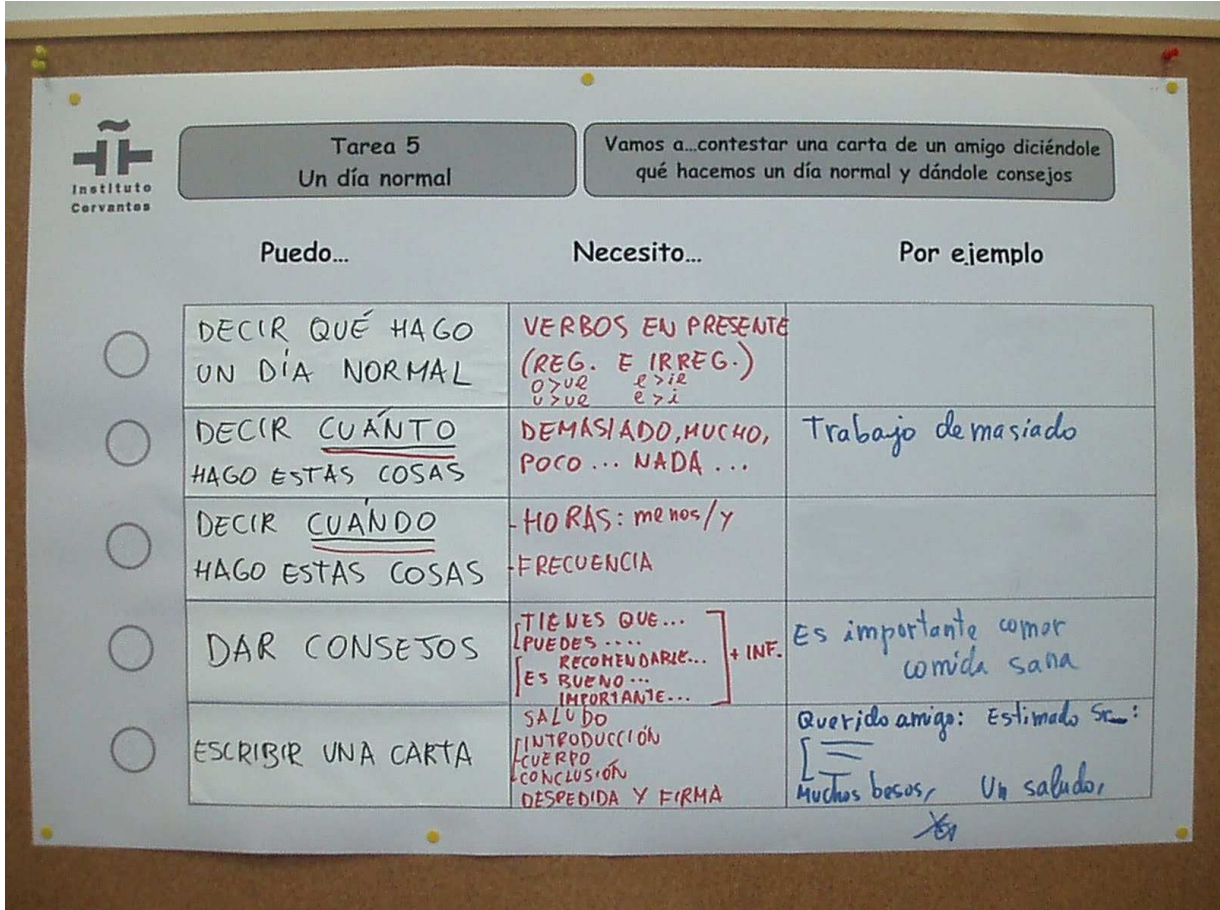 Instituto
Cervantes
Tarea 5
Un día normal
Vamos a...contestar una carta de un amigo diciéndole
qué hacemos un día normal y dándole consejos
Puedo...
Necesito...
Por ejemplo
DECIR QUÉ HAGO
UN DÍA NORMAL
VERBOS EN PRESENTE
(REG. E IRREG.)
o>ue e>ie
u>ue e>i
DECIR CUÁNTO
HAGO ESTAS COSAS
DEMASIADO, MUCHO,
POCO ... NADA ...
Trabajo demasiado
DECIR CUÁNDO
HAGO ESTAS COSAS
- HORAS: menos/y
- FRECUENCIA
DAR CONSEJOS
TIENES QUE...
PUEDES ....
RECOMENDABLE...
ES BUENO ...
IMPORTANTE...
+ INF.
Es importante comer
comida sana
ESCRIBIR UNA CARTA
SALUDO
INTRODUCCIÓN
CUERPO
CONCLUSIÓN
DESPEDIDA Y FIRMA
Querido amigo: Estimado Sr...:
Muchos besos, Un saludo,